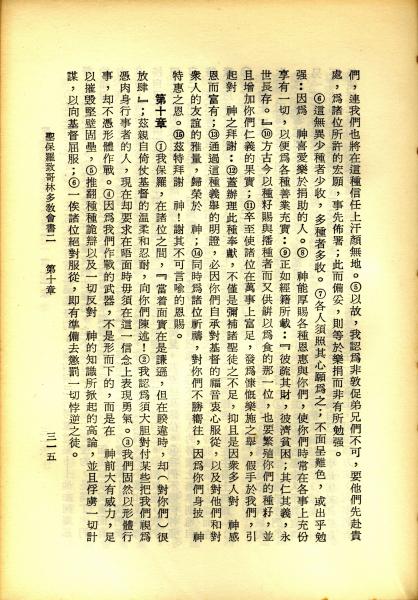 們，連我們也將在這種信任上汗顏無地。⑤以故，我認爲非敦促弟兄們不可，要他們先赴貴
處，爲諸位所許的宏願，事先佈署；此而備妥，則等於樂捐而非有所勉强。
⑥這無異少種者少收，多種者多收。⑦各人須照其心願爲之；不面呈難色，或出乎勉
强：因爲 神喜愛樂於捐助的人。⑧ 神能厚賜各種恩惠與你們，使你們時常在各事上充份
享有一切，以便爲各種善業充實：⑨正如經籍所載：『彼疏其財，彼濟貧困；其仁其義，永
世長存。』⑩方古今以種籽賜與播種者而又供餅以爲食的那一位，也要繁殖你們的種籽，並
且增加你們仁義的果實；⑪卒至使諸位在萬事上富足，發爲慷慨樂施之舉，假手於我們，引
起對 神之拜謝：⑫蓋辦理此種奉獻，不僅是彌補諸聖徒之不足，抑且是因衆多人對 神感
恩而富有；⑬通過這種義舉的明證，必因你們自承對基督的福音衷心服從，以及對他們和對
衆人的友誼的雅量，歸榮於 神；⑭同時爲諸位祈禱，對你們不勝嚮往，因爲你們身披 神
特惠之恩。⑮茲特拜謝 神！謝其不可言喩的恩賜。
第十章 ①我保羅，在諸位之間，『當着面實在是謙遜，但在睽違時，却（對你們）很
放肆』；茲親自倚仗基督的溫柔和忍耐，向你們陳述！②我認爲須大胆對付某些把我們視爲
憑肉身行事者的人，現在却要求在晤面時毋須在這一信念上表現勇氣。③我們固然以形體行
事，却不憑形體作戰。④因爲我們作戰的武器，不是形而下的，而是在 神前大有威力，足
以摧毁堅壁固壘，⑤推翻種種詭辯以及一切反對 神的知識所掀起的高論，並且俘虜一切計
謀，以向基督屈服；⑥一俟諸位絕對服從，即有準備去懲罰一切悖逆之徒。
聖保羅致哥林多敎會書二 第十章 三一五